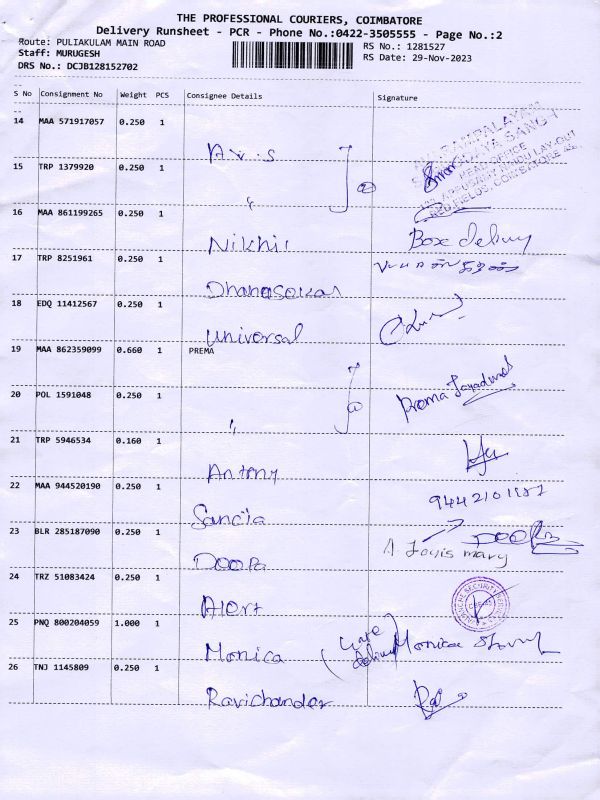 THE PROFESSIONAL COURIERS, COIMBATORE
Delivery Runsheet - PCR - Phone No.:0422-3505555 - Page No.:2
Route: PULIAKULAM MAIN ROAD
RS No.: 1281527
Staff: MURUGESH
RS Date: 29-Nov-2023
DRS No.: DCJB128152702
S No Consignment No Weight PCS Consignee Details Signature
14 MAA 571917057 0.250 1
15 TRP 1379920 0.250 1
16 MAA 861199265 0.250 1
Nikhil Box delivy
17 TRP 8251961 0.250 1
Dhanasekar
18 EDQ 11412567 0.250 1
Universal
19 MAA 862359099 0.660 1 PREMA
20 POL 1591048 0.250 1
Prema
21 TRP 5946534 0.160 1
Antony
22 MAA 944520190 0.250 1
Sancila
23 BLR 285187090 0.250 1
Doopa
A Jayis mary
24 TRZ 51083424 0.250 1
Alert
25 PNQ 800204059 1.000 1
Monica Monica
26 TNJ 1145809 0.250 1
Ravichander